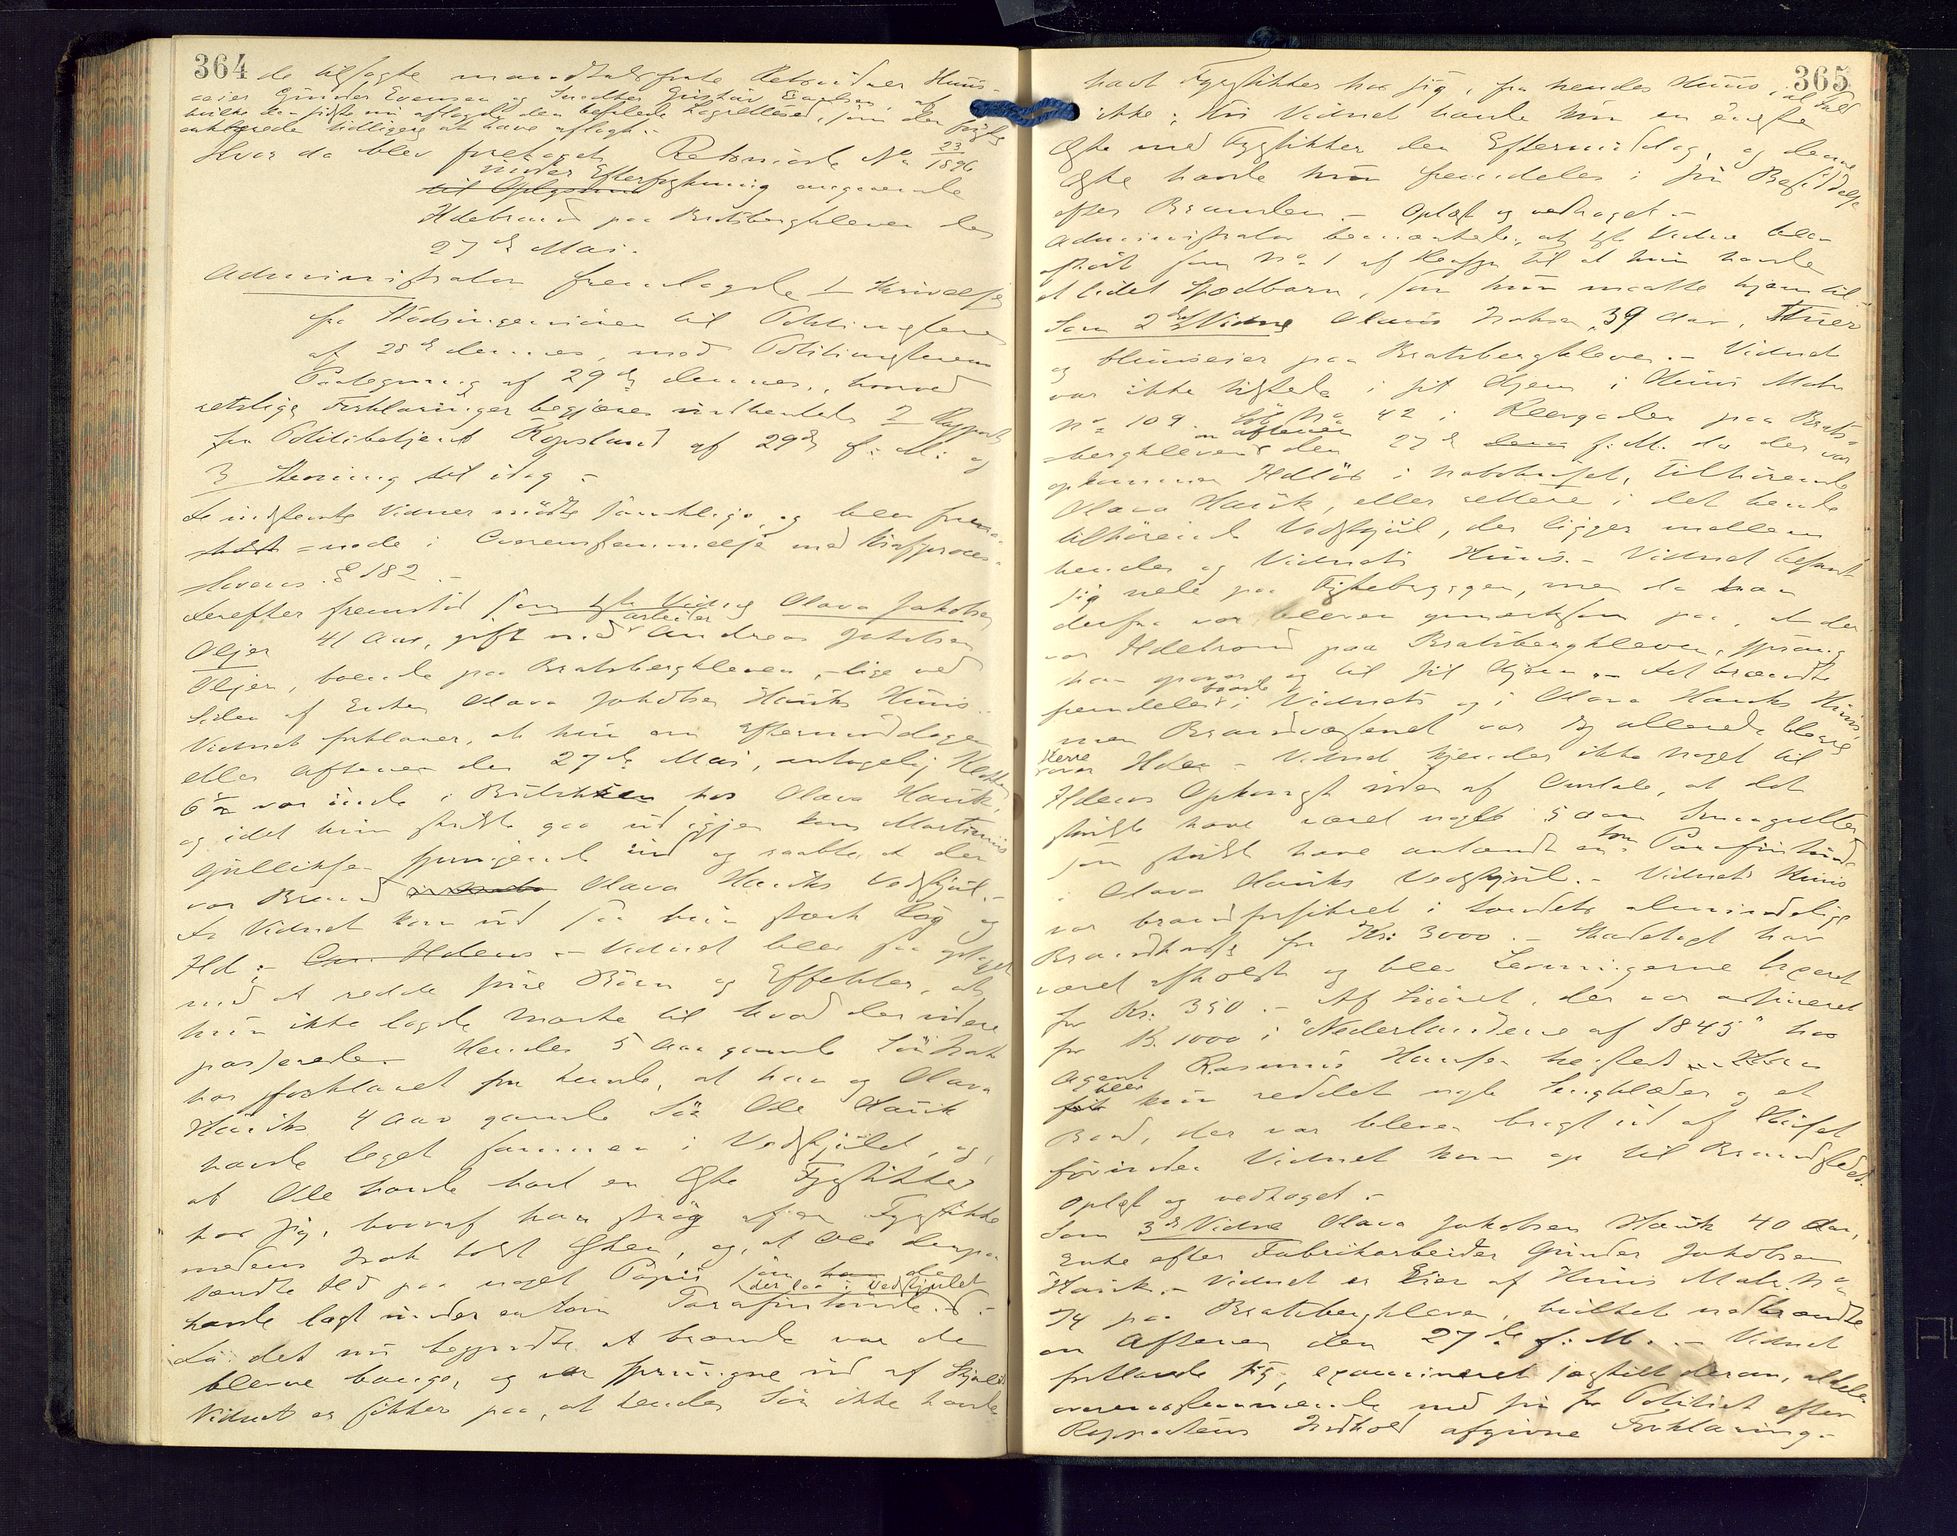 364
de tilsagte mandtalsførte Retsvidner Huus-
eier Gunder Evensen og Smedker Gustav Paulsen, af
hvilke den sidste nu aflagde den befalede Lagretteed, som den første
anførte tidligere at have aflagt.
Hvor da blev foretaget Retsmøde No 23/1896
under Efterforskning angaaende
til Oplysning
Ildebrand paa Bratsbergkleven den
27de Mai.
Administrator fremlagde 1 Skrivelse
fra Stadsingeniøren til Politimesteren
af 28de dennes, med Politimesterens
Paategning af 29de dennes, hvorved
retslige Forklaringer begjæres indhentede 2 Rapport
fra Politibetjent Kopsland af 29de f: M: og
3 Stevning til idag -
De indstevnte Vidner mødte samtlige, og blev frema-
nede i Overensstemmelse med Strafproces-
lovens § 182 -
Derefter fremstod som 1ste Vidne Olava Jakobsen
Oljer 41 Aar, gift med Arbeider Andreas Jakobsen
Oljer, boende paa Bratsbergkleven, - lige ved
Siden af Enken Olava Jakobsen Hauks Huus.
Vidnet forklarer, at hun om Eftermiddagen
eller Aftenen den 27de Mai, antagelig Klokken
6½ var inde i Butikken hos Olava Hauk,
og idet hun skulde gaa ud igjen kom Martinius
Gulliksen springende ind og raabte, at der
var Brand i Olava Hauks Vedskjul. -
Da Vidnet kom ud saa hun stærk Røg og
Ild; - Om Ildens - Vidnet blev saa optaget
med at redde sine Børn og Effekter, at
hun ikke lagde Mærke til hvad der videre
passerede. - Hendes 5 Aar gamle Søn Isak
har forklaret for hende, at han og Olava
Hauks 4 Aar gamle Søn Ole Hauk
havde leget sammen i Vedskjulet, og,
at Ole havde havt en Æske Fyrstikker
hos sig, hvoraf han strøg af en Fyrstikke
medens Isak holdt Æsken, og, at Ole derpaa
tændte Ild paa noget Papir som han de
(der laa i Vedskjulet
havde lagt under en tom Parafintønde. -
Da det nu begyndte at brænde var de
blevne bange, og var sprungne ud af Skjulet
Vidnet er sikker paa, at hendes Søn ikke havde
365
havt Fyrstikker hos sig, fra hendes Huus, ialfald
ikke; thi Vidnet havde kun en eneste
Æske med Fyrstikker den Eftermiddag, og denne
Æske havde hun fremdeles i sin Besiddelse
efter Branden. - Oplæst og vedtaget. -
Administrator bemærkede, at 1ste Vidne blev
afhørt som No 1 af Hensyn til at hun havde
et lidet Spædbarn, som hun maatte hjem til. -
Som 2det Vidne Olaus Isaksen, 39 Aar, Stuer
og Huuseier paa Bratsbergkleven. - Vidnet
var ikke tilstede i sit Hjem i Huus Matr.
No 109. Løb No 42 i Klevgaden paa Brats-
bergkleven om Aftenen den 27de f. M. da der var
opkommen Ildløs i Nabohuset, tilhørende
Olava Hauk, eller rettere i det hende
tilhørende Vedskjul, der ligger mellem
hendes og Vidnets Huus. - Vidnet befandt
sig nede paa Fiskebryggen, men da han
derfra var bleven opmerksom paa, at der
var Ildebrand paa Bratsbergkleven, sprang
han opover og til sit Hjem. - Det brændte
fremdeles baade i Vidnets og i Olava Hauks Huus,
men Brandvæsenet var da allerede bleven
Herre over Ilden - Vidnet kjender ikke noget til
Ildens Opkomst uden af Omtale, at det
skulde have været nogle 5 Aars Smaagutter
som skulde have antændt en tom Parafintønde
i Olava Hauks Vedskjul. - Vidnets Huus
var brandforsikret i Landets almindelige
Brandkasse for Kr: 3000. - Skadetaxt har
været afholdt og blev Levningerne taxeret
for Kr: 350. - Af Indboet, der var assureret
for Kr. 1000 i "Nederlandene af 1845" hos
Agent Rasmus Hansen hersteds
blev kun reddet nogle Sengklæder og et
Bord, der var bleven bragt ud af Huset
førinden Vidnet kom op til Brandstedet.
Oplæst og vedtaget. -
Som 3die Vidne Olava Jakobsen Hauk 40 Aar,
Enke efter Fabrikarbeider Gunder Jakobsen
Hauk. - Vidnet er Eier af Huus Matr. No
74 paa Bratsbergkleven, hvilket nedbrændte
om Aftenen den 27de f: M. - Vidnet
forklarede sig, examineret sagtilt derom, aldeles
overensstemmende med sin for Politiet efter
Rapportens Indhold afgivne Forklaring. -